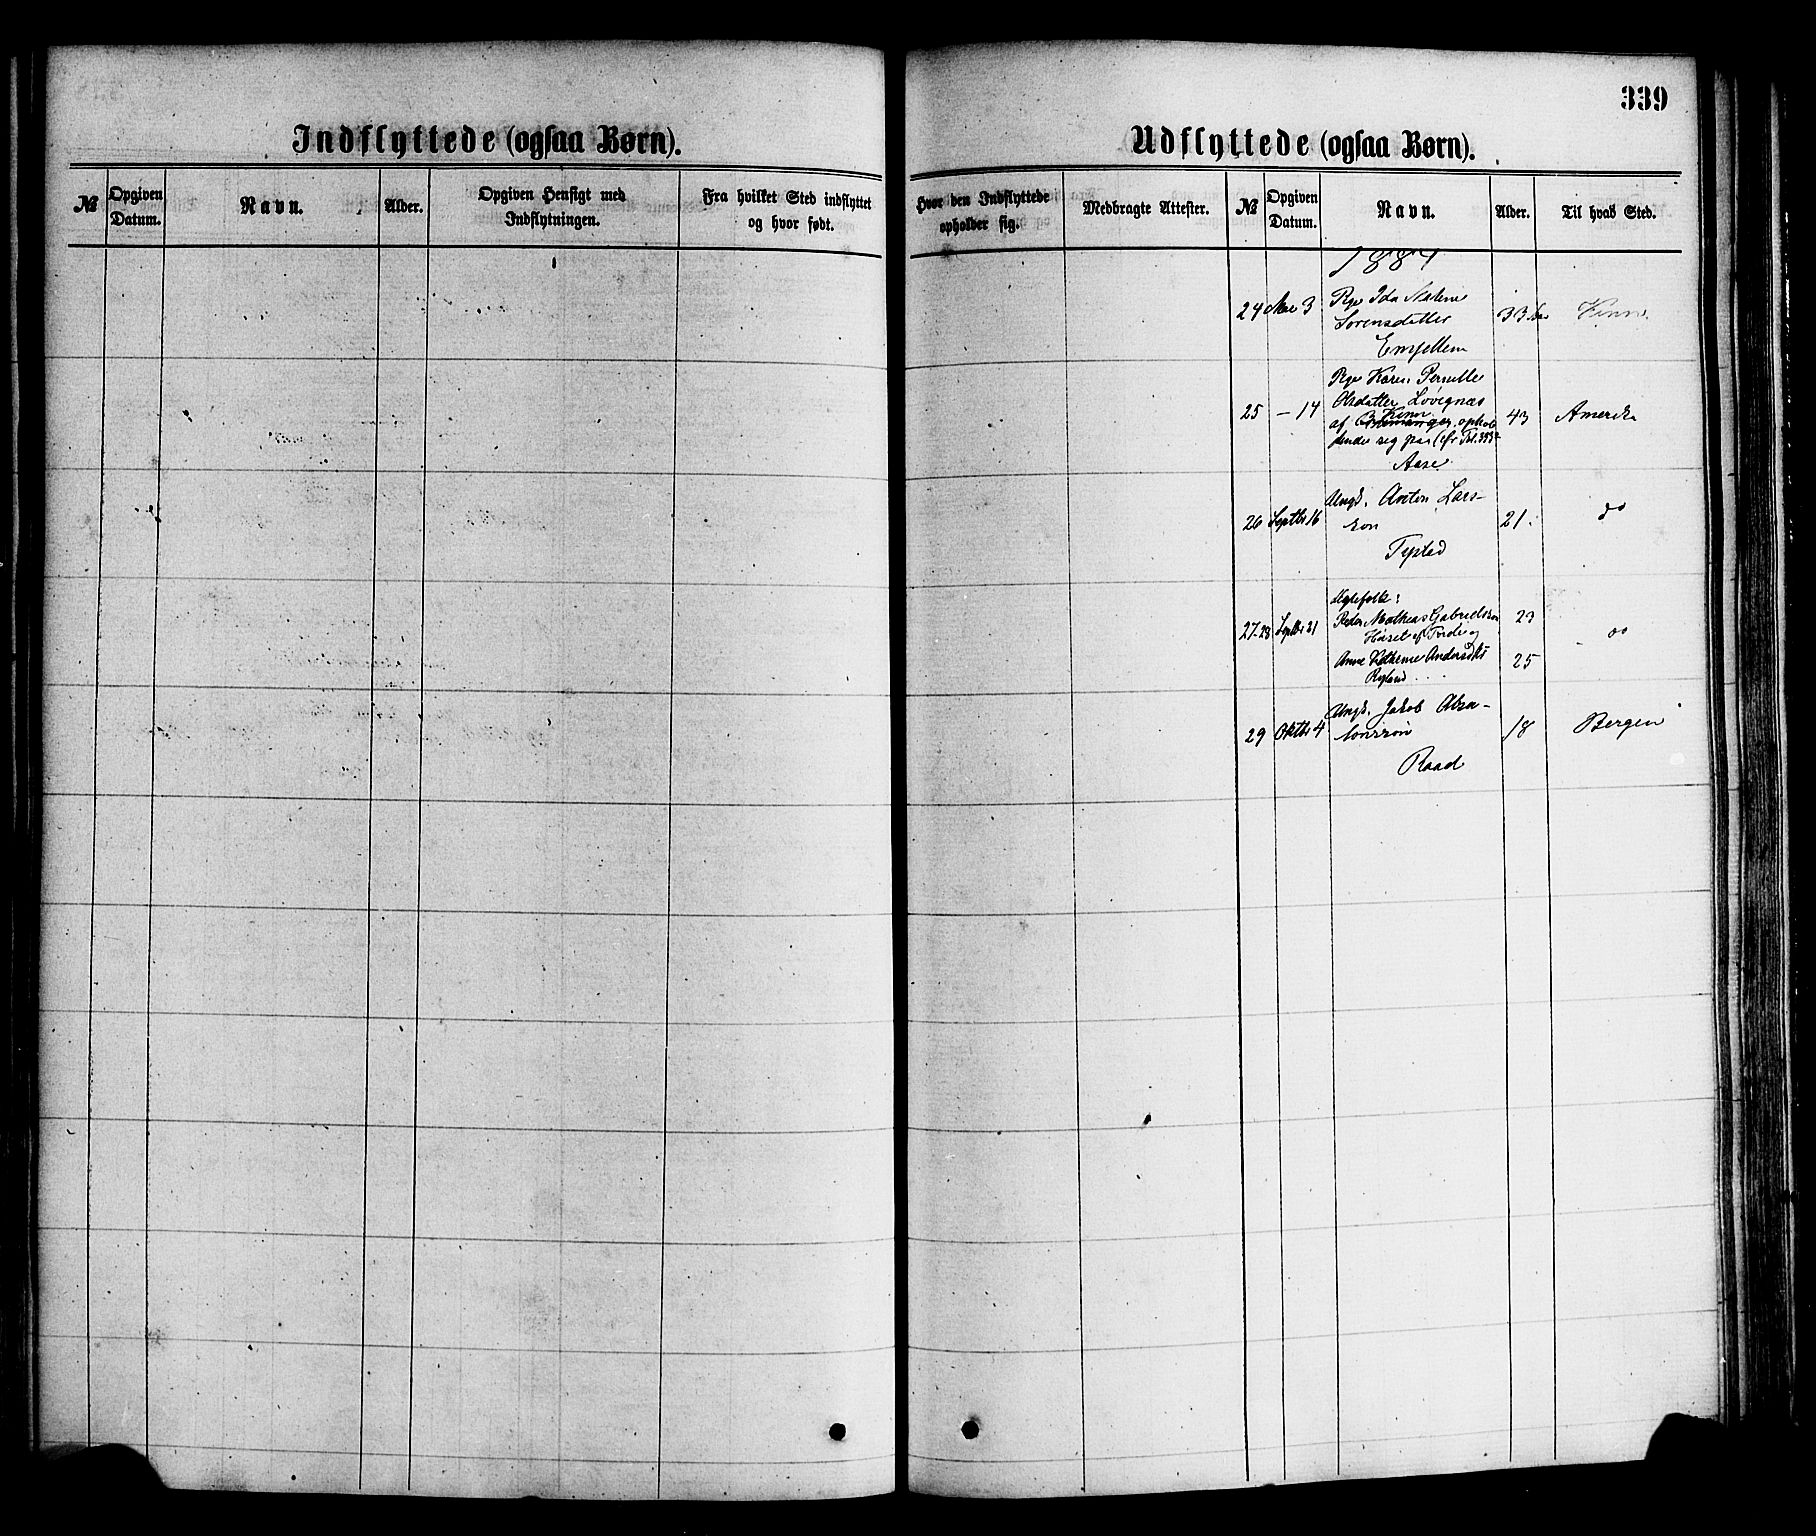 339
Indflyttede (ogsaa Børn).
Udflyttede (ogsaa Børn).
№
Opgiven Datum.
Navn.
Alder.
Opgiven Hensigt med Indflytningen.
Fra hvilket Sted indflyttet og hvor født.
Hvor den Indflyttede opholder sig.
Medbragte Attester.
№
Opgiven Datum.
Navn.
Alder.
Til hvad Sted.
1884
24 3 Pge Ida
Sørensdatter 33 Kinn
25 – 14 Pge Karen Pernille
Olsdatter Løvignæs 43 Amerika
af Kinn ophol
dende sig paa
Aase
26 Septbr 16 Ungk. Anton Lars-
søn 21. do
Tystad
27-28 Septbr 21 Ægtefolk:
Peder Mathias Gabrielssøn 23 do
af Førde og
Anne Kathrine Andersdtr 25
Ryland
29 Oktbr 4 Ungk. Jakob Absa-
lonssøn 18 Bergen
Raad